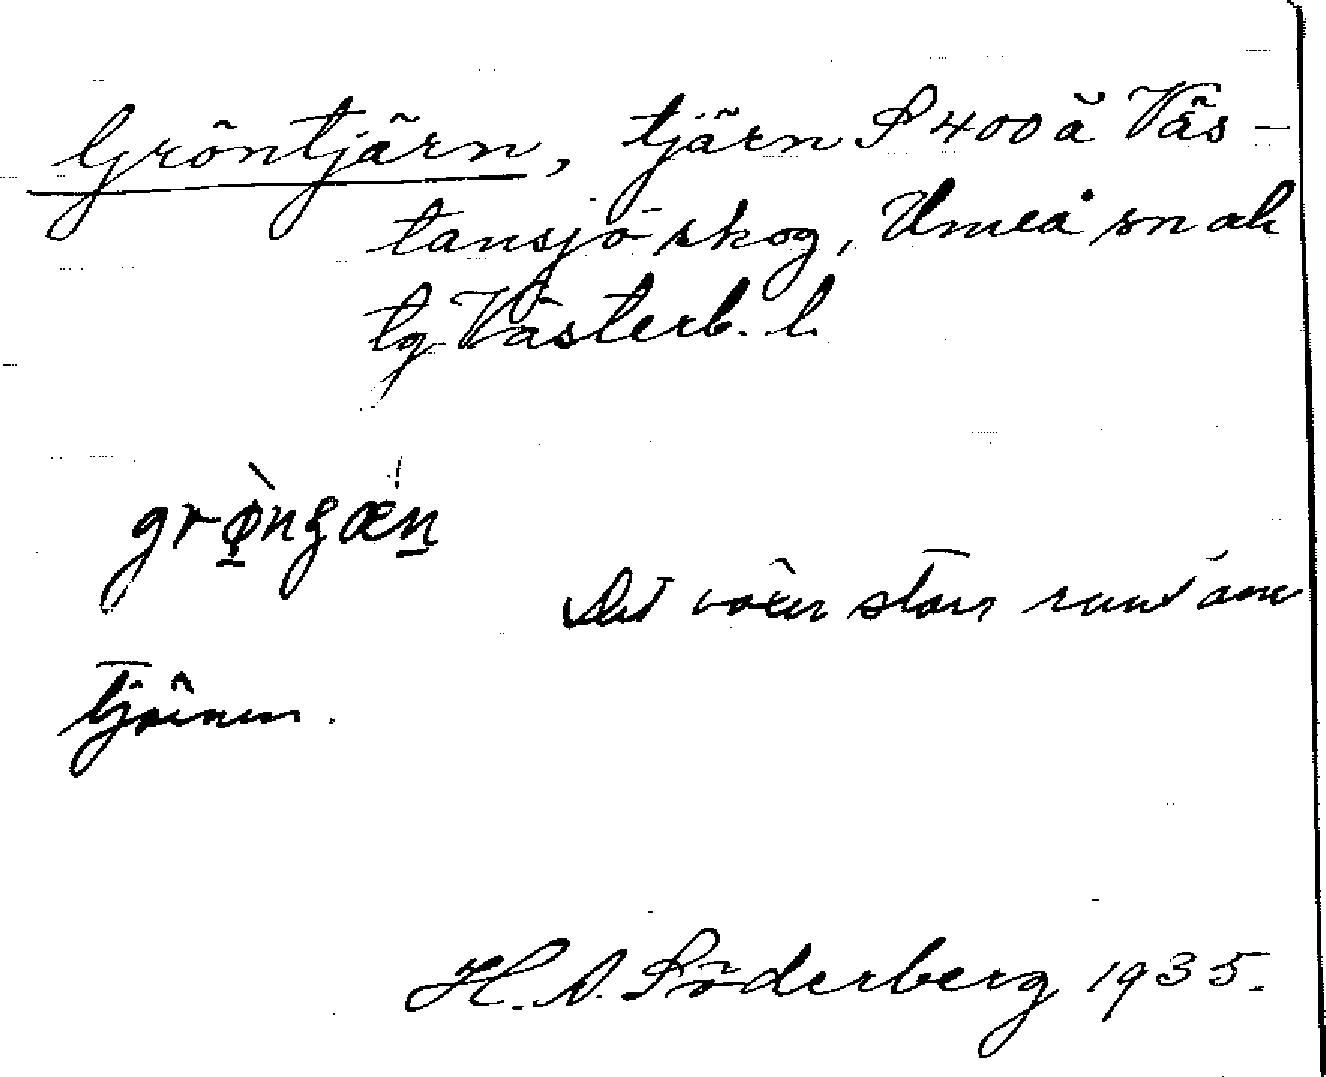 Gröntjärn, tjärn S 400 å Väs-
tansjö skog, Umeå sn och
tg Västerb. l.
grø̀nʒæn
Det växer starr runt om
tjärnen.
H. A. Söderberg 1935.